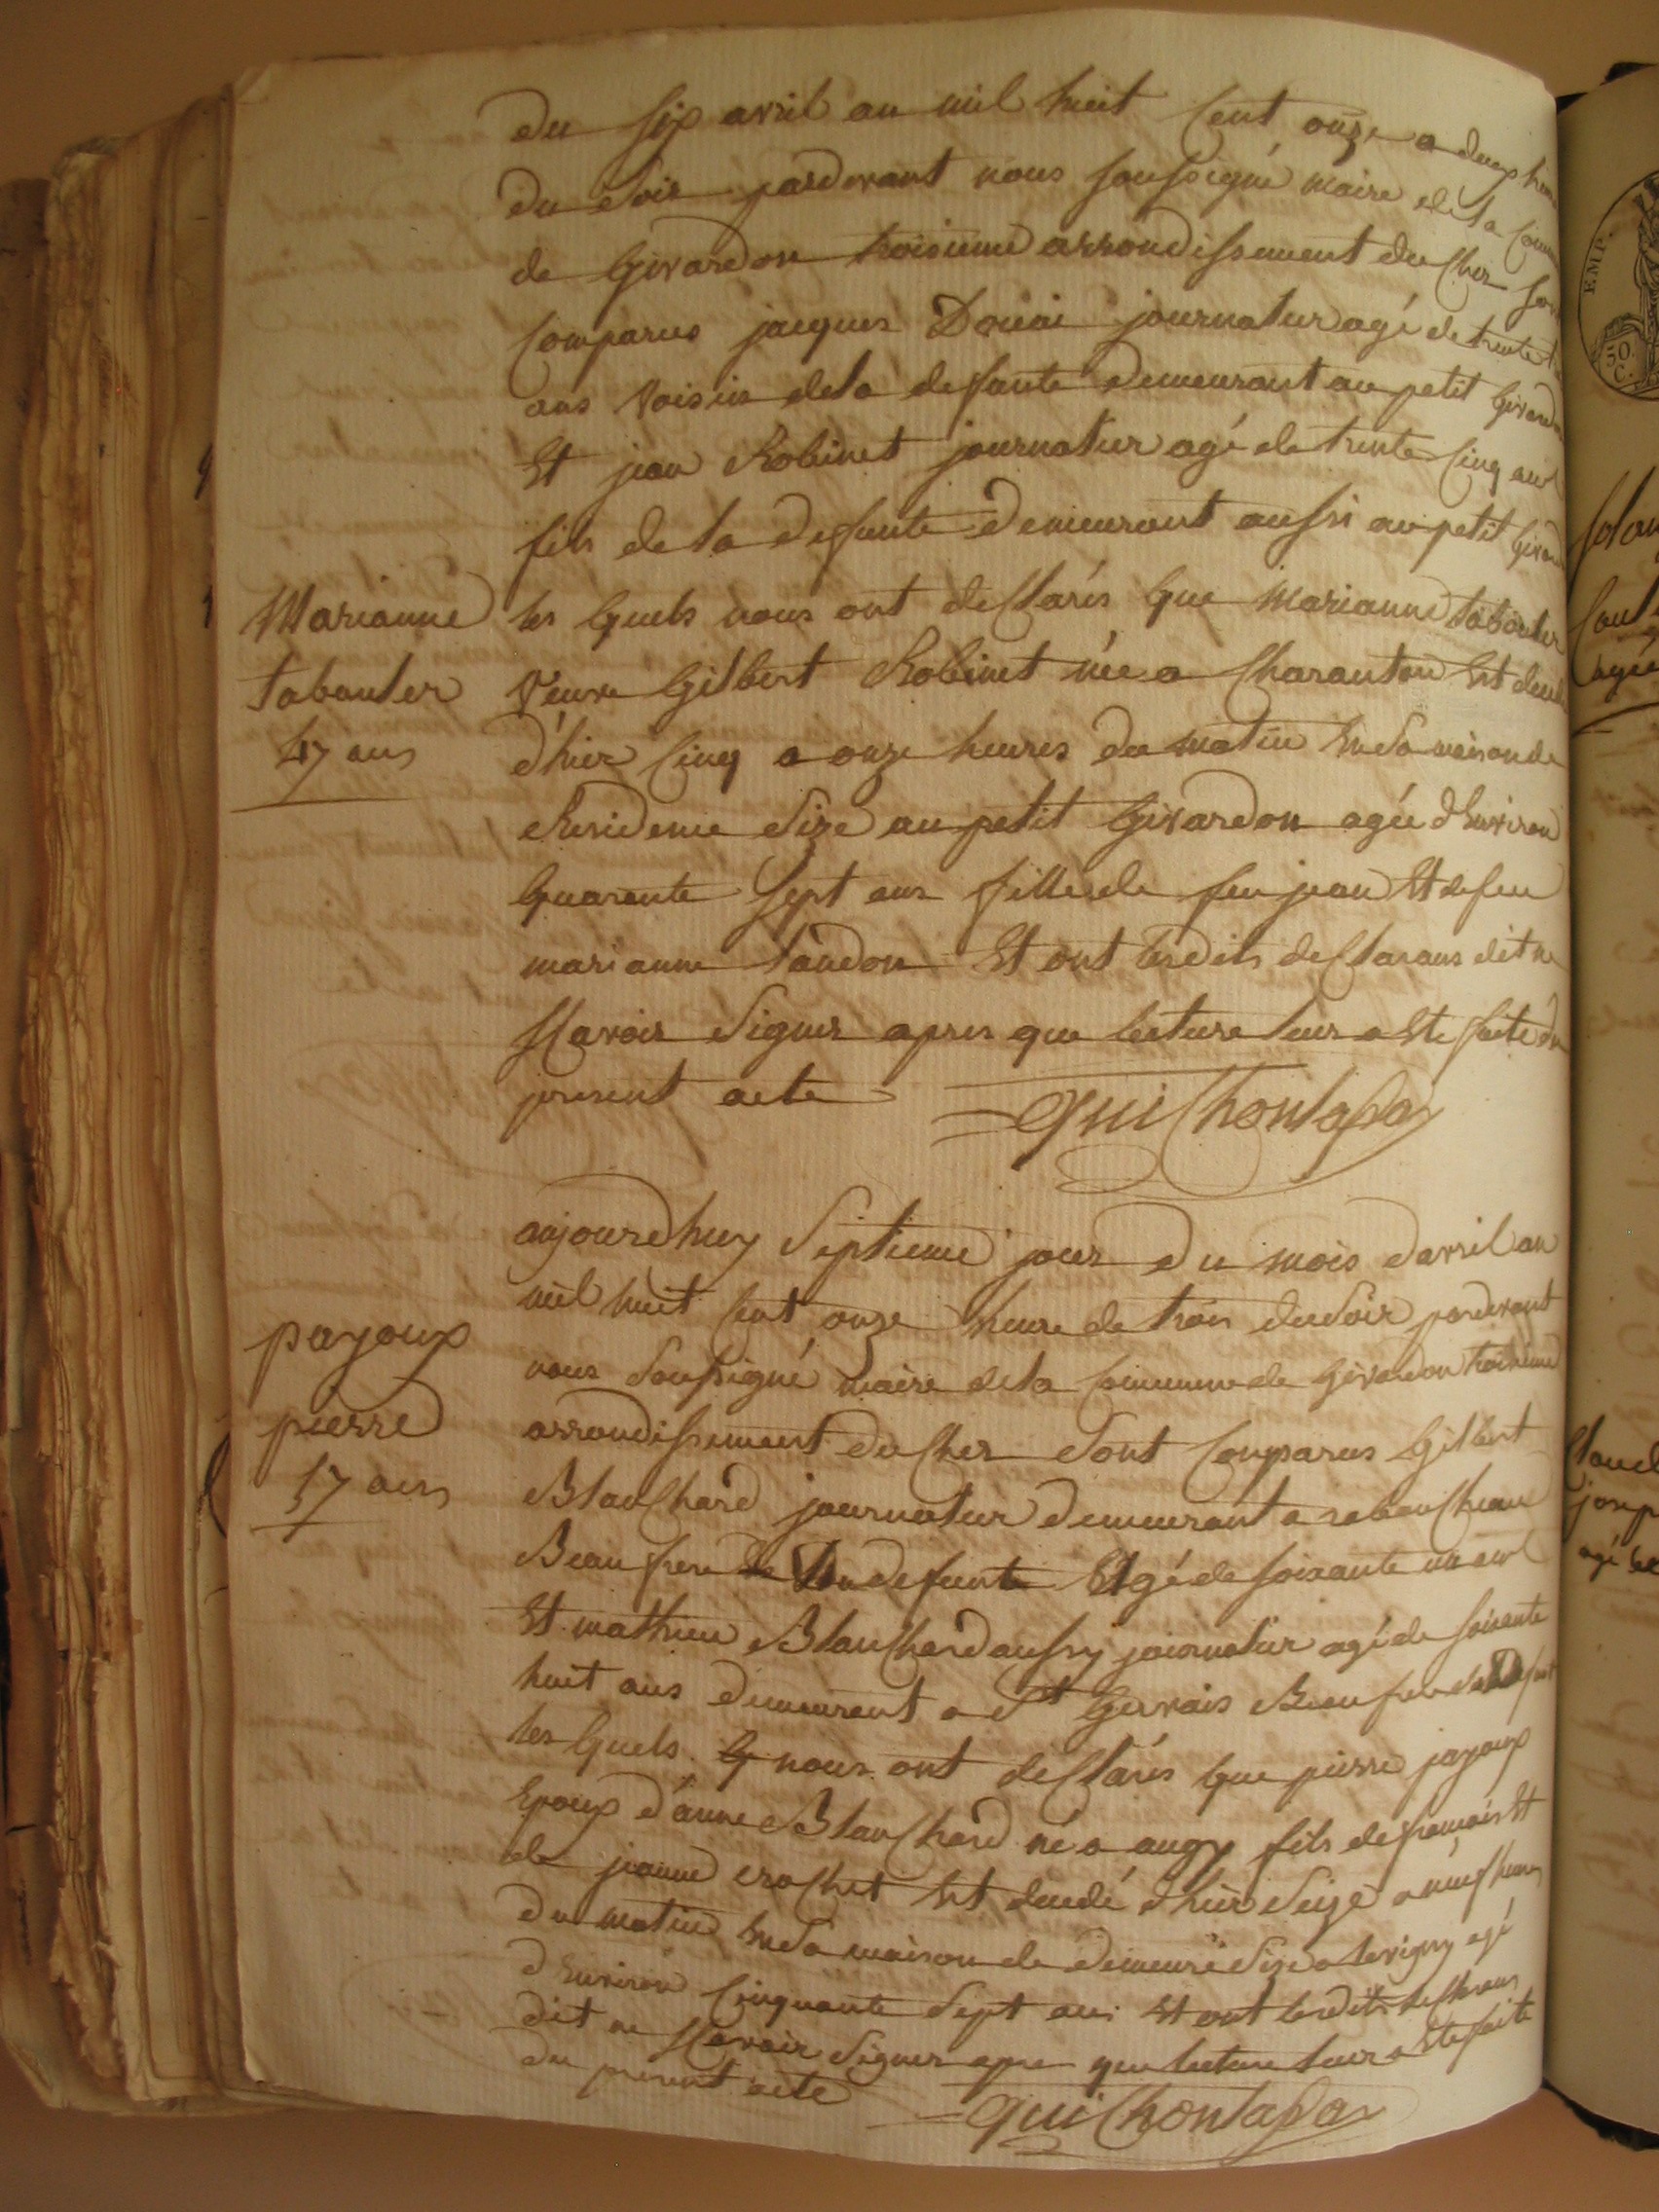 du six avril an mil huit Cent onze a deux heure
du Soir pardevant nous soussigné maire de la Comm
de Givardon troisieme arrondissement du Cher Son
Comparus jacques Douai journatur agé de trente
ans Voisin de la defunte demeurant au petit Givardon
Et jean Robinet journatur agé de trente Cinq ans
fils de la defunte demeurant aussi au petit Givard
Marianne
tabouter
47 ans
les quels nous ont desclarés que Marianne tabouter
Veuve Gilbert Robinet née a Charanton Est decedé
d'hier Cinq a onze heures du matin En Sa maison de
Residence Size au petit Givardon agée d'Environ
quarante Sept ans fille de feu jean Et de feu
marianne tandon Et ont lesdits desclarans dit ne
Scavoir Signer apres que lecture leur a Ete faite du
present acte
Guichontapa
aujourdhuy Septieme jour du mois d'avril an
mil huit Cent onze heure de trois du Soir pardevant
nous Soussigné maire de la Commune de Givardon troisieme
payoux
pierre
57 ans
arrondissement du Cher Sont Comparus Gilbert
Blanchard journatur demeurant a
Beaufrere defunte Et agé de soixante un ans
Et mathieu Blanchard aussy journatur agé de soixante
huit ans demeurant a St Gervais Beaufrere
les quels nous ont desclarés que pierre payoux
Epoux d'anne Blanchard né a augy fils de francois Et
de jeanne crochet Est decedé d'hier Seize a neuf heures
du matin En Sa maison de demeure Size a Levigny agé
d'Environ Cinquante Sept ans Et ont lesdits desclarans
dit ne Scavoir Signer apres que lecture leur a Ete faite
du present acte
Guichontapa
EMP.
50.
C.